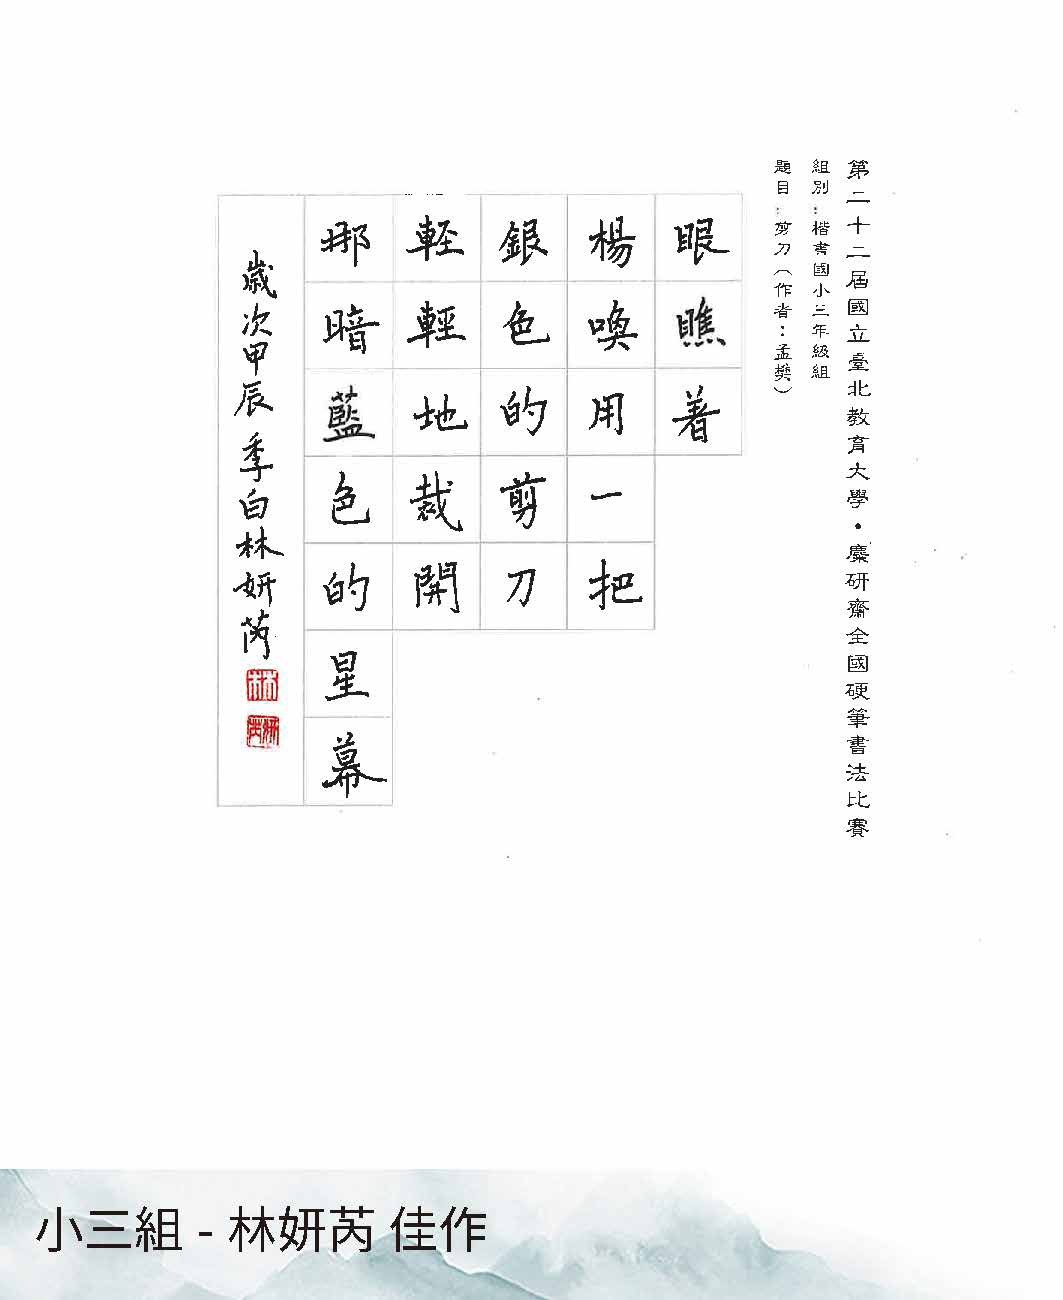 第二十二屆國立臺北教育大學・麋研齋全國硬筆書法比賽
組別：楷書國小三年級組
題目：剪刀（作者：孟樊）
眼瞧着
楊喚用一把
銀色的剪刀
輕輕地裁開
那暗藍色的星幕
歲次甲辰季白林妍芮
林
妍芮
小三組 - 林妍芮 佳作